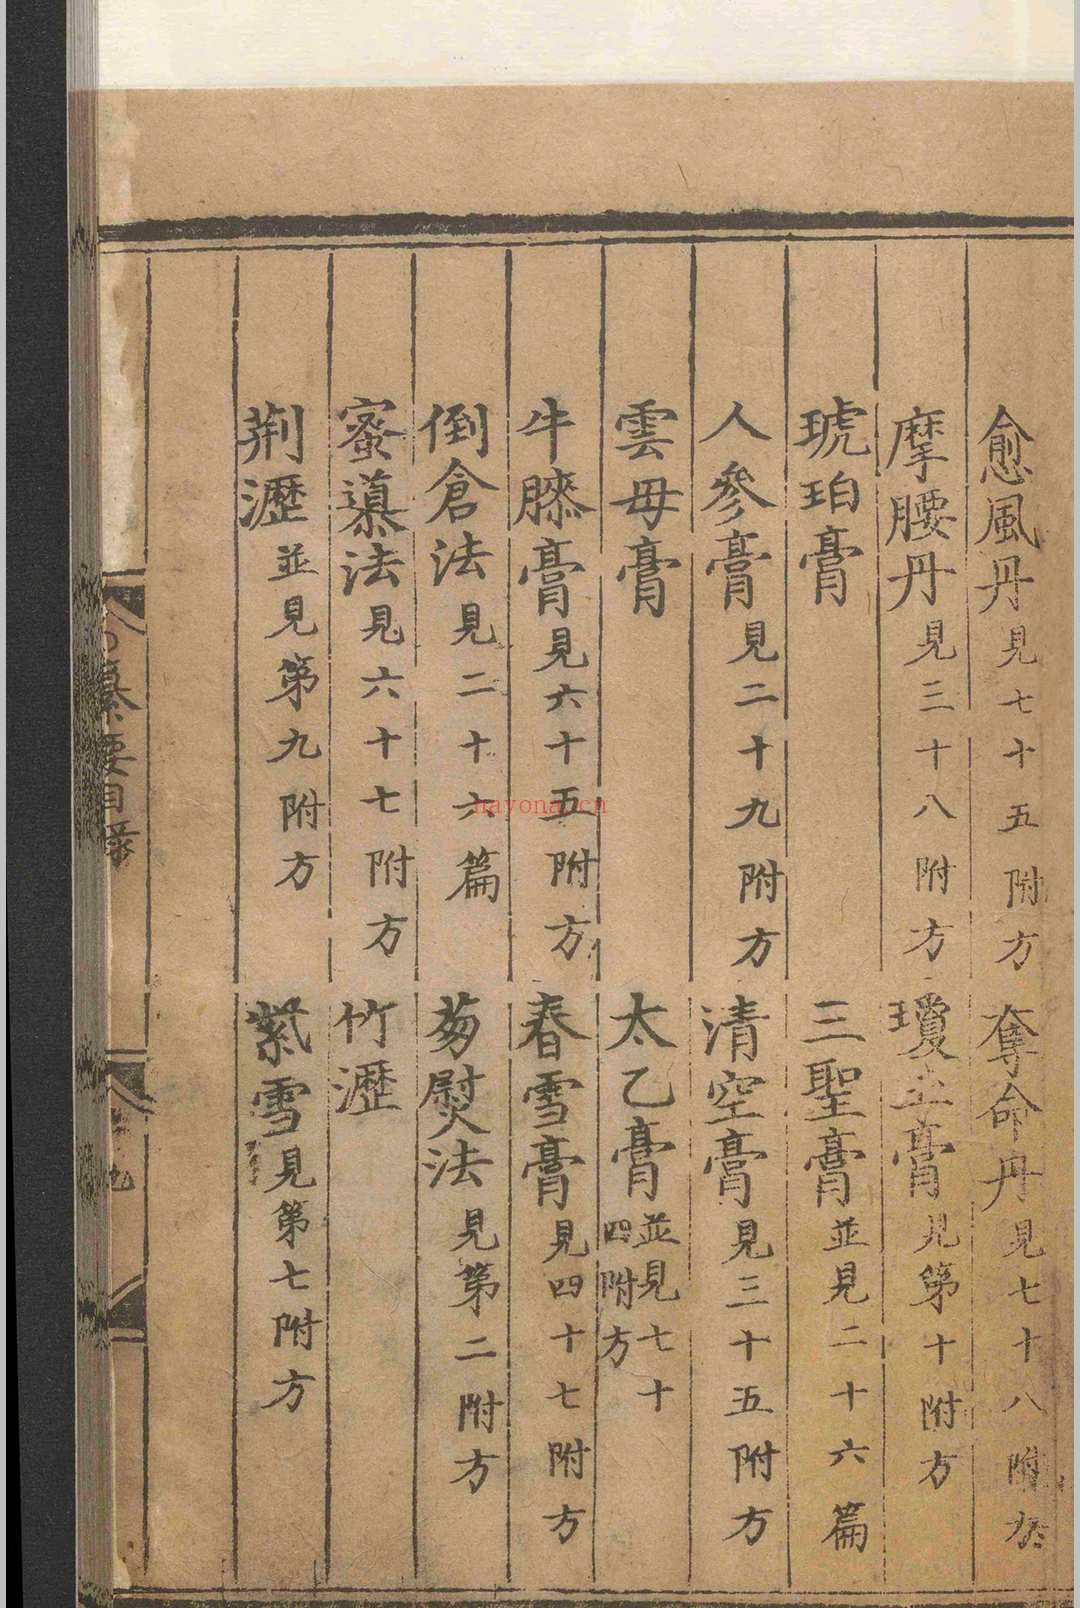 愈風丹見七十五附方 奪命丹見七十八附方
摩腰丹見三十八附方 瓊玉膏見第十附方
琥珀膏 三聖膏並見二十六篇
人參膏見二十九附方 清空膏見三十五附方
雲母膏 太乙膏並見七十四附方
牛膝膏見六十五附方 春雪膏見四十七附方
倒倉法見二十六篇 芴熨法見第二附方
蜜導法見六十七附方 竹瀝
荆瀝並見第九附方 紫雪見第七附方
纂要目錄
九
nayona.cn